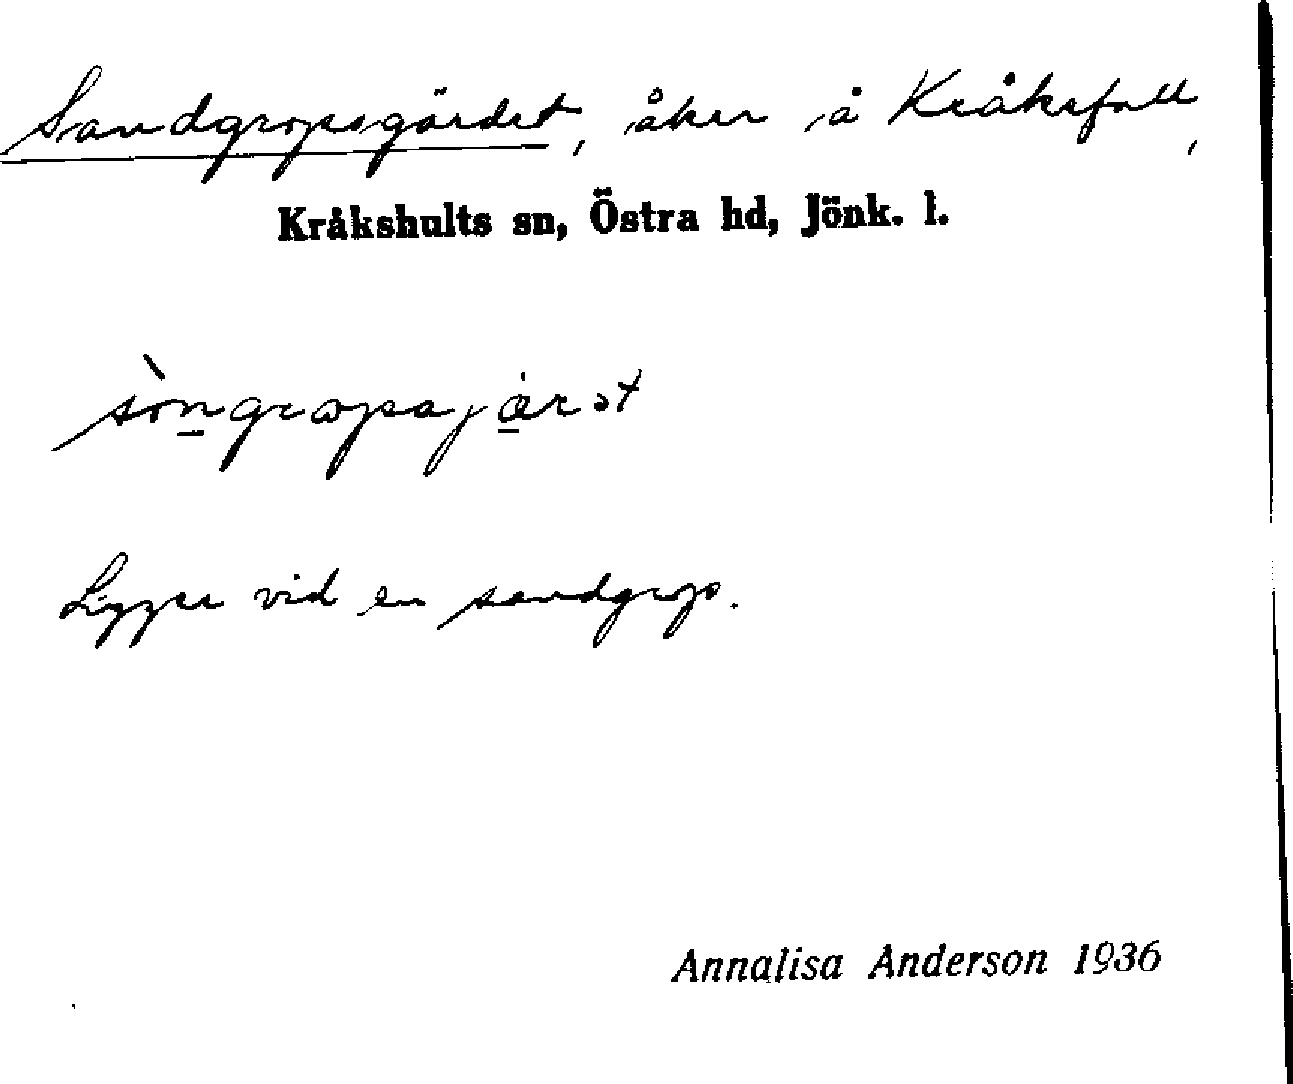 Sandgropsgärdet, åker å Kråksfall,
Kråkshults sn, Östra hd, Jönk. l.
Ligger vid en sandgrop.
Annalisa Anderson 1936